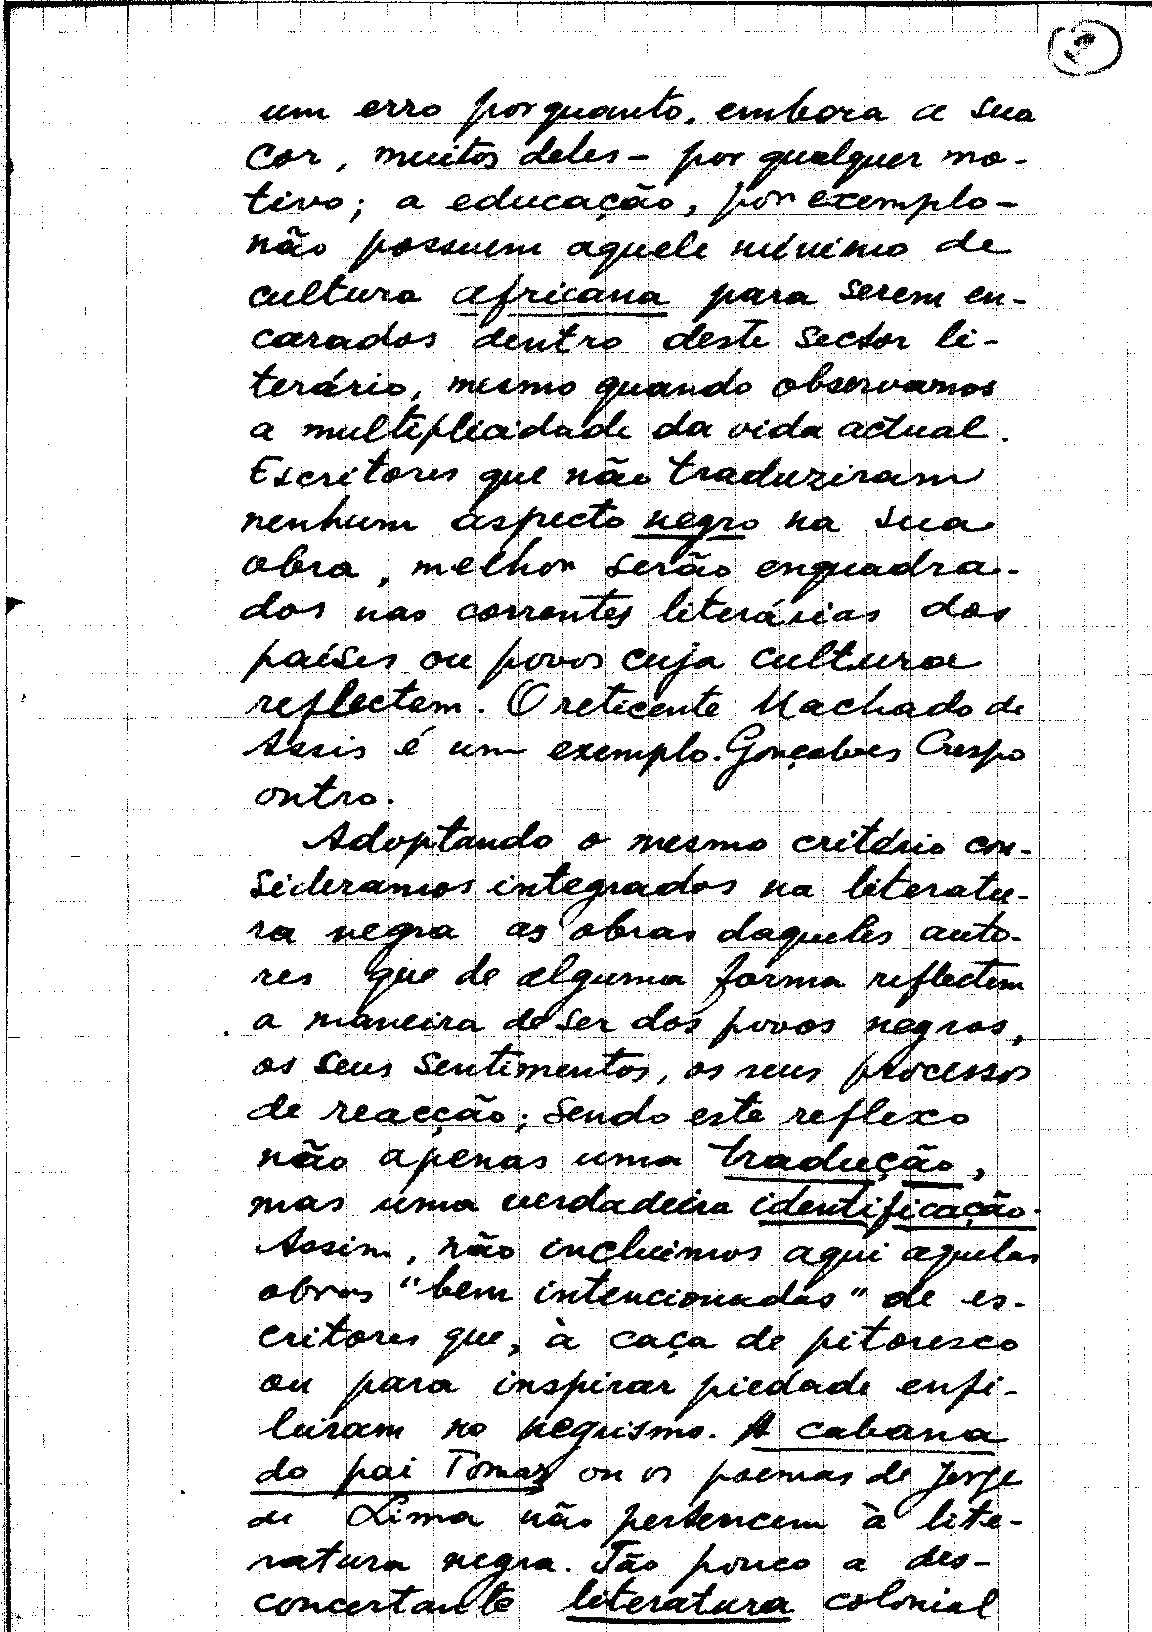 um erro porquanto, embora a sua
cor, muitos deles - por qualquer mo-
tivo; a educação, por exemplo -
não possuem aquele mínimo de
cultura africana para serem en-
carados dentro deste sector li-
terário, mesmo quando observamos
a multiplicidade da vida actual.
Escritores que não traduziram
nenhum aspecto negro na sua
obra, melhor serão enquadra-
dos nas correntes literárias dos
países ou povos cuja cultura
reflectem. O reticente Machado de
Assis é um exemplo. Gonçalves Crespo
outro.
Adoptando o mesmo critério con-
sideramos integrados na literatu-
ra negra as obras daqueles auto-
res que de alguma forma reflectem
a maneira de ser dos povos negros,
os seus sentimentos, os seus processos
de reacção; sendo este reflexo
não apenas uma tradução,
mas uma verdadeira identificação.
Assim, não incluimos aqui aquelas
obras "bem intencionadas" de es-
critores que, à caça de pitoresco
ou para inspirar piedade enfi-
leiram no negrismo. A cabana
do pai Tomaz ou os poemas de Jorge
de Lima não pertencem à lite-
ratura negra. Tão pouco a des-
concertante literatura colonial